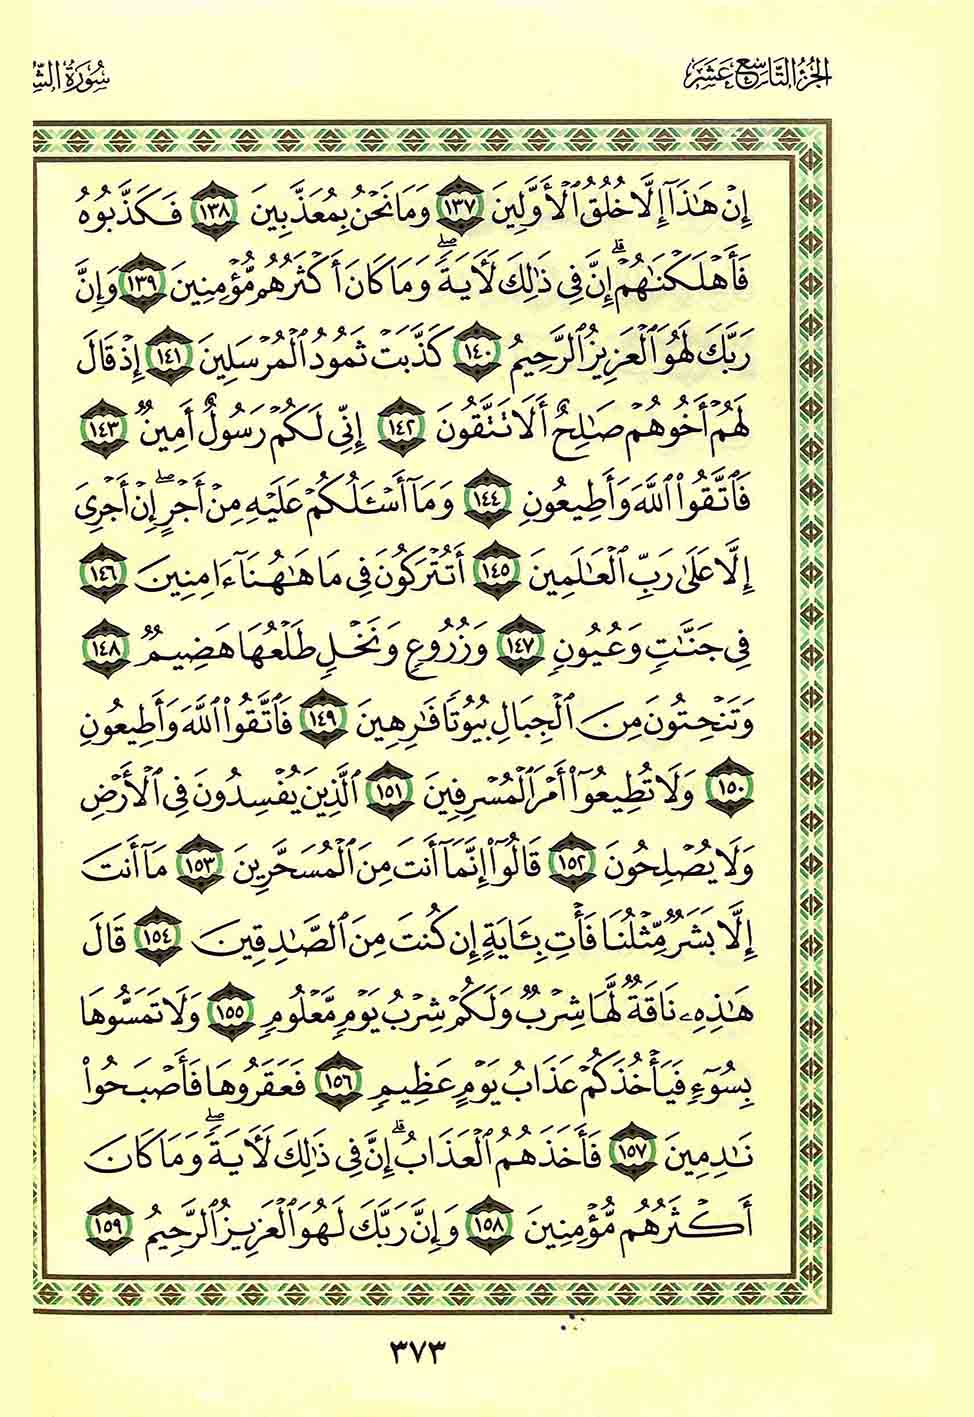 الجزء التاسع عشر
سورة الشـ
إِنْ هَٰذَآ إِلَّا خُلُقُ ٱلْأَوَّلِينَ ١٣٧ وَمَا نَحْنُ بِمُعَذَّبِينَ ١٣٨ فَكَذَّبُوهُ
فَأَهْلَكْنَٰهُمْ ۗ إِنَّ فِى ذَٰلِكَ لَأَيَةً ۖ وَمَا كَانَ أَكْثَرُهُم مُّؤْمِنِينَ ١٣٩ وَإِنَّ
رَبَّكَ لَهُوَ ٱلْعَزِيزُ ٱلرَّحِيمُ ١٤٠ كَذَّبَتْ ثَمُودُ ٱلْمُرْسَلِينَ ١٤١ إِذْ قَالَ
لَهُمْ أَخُوهُمْ صَٰلِحٌ أَلَا تَتَّقُونَ ١٤٢ إِنِّى لَكُمْ رَسُولٌ أَمِينٌ ١٤٣
فَٱتَّقُوا۟ ٱللَّهَ وَأَطِيعُونِ ١٤٤ وَمَآ أَسْـَٔلُكُمْ عَلَيْهِ مِنْ أَجْرٍ ۖ إِنْ أَجْرِىَ
إِلَّا عَلَىٰ رَبِّ ٱلْعَٰلَمِينَ ١٤٥ أَتُتْرَكُونَ فِى مَا هَٰهُنَآ ءَامِنِينَ ١٤٦
فِى جَنَّٰتٍ وَعُيُونٍ ١٤٧ وَزُرُوعٍ وَنَخْلٍ طَلْعُهَا هَضِيمٌ ١٤٨
وَتَنْحِتُونَ مِنَ ٱلْجِبَالِ بُيُوتًا فَٰرِهِينَ ١٤٩ فَٱتَّقُوا۟ ٱللَّهَ وَأَطِيعُونِ
١٥٠ وَلَا تُطِيعُوٓا۟ أَمْرَ ٱلْمُسْرِفِينَ ١٥١ ٱلَّذِينَ يُفْسِدُونَ فِى ٱلْأَرْضِ
وَلَا يُصْلِحُونَ ١٥٢ قَالُوٓا۟ إِنَّمَآ أَنتَ مِنَ ٱلْمُسَحَّرِينَ ١٥٣ مَآ أَنتَ
إِلَّا بَشَرٌ مِّثْلُنَا فَأْتِ بِـَٔايَةٍ إِن كُنتَ مِنَ ٱلصَّٰدِقِينَ ١٥٤ قَالَ
هَٰذِهِۦ نَاقَةٌ لَّهَا شِرْبٌ وَلَكُمْ شِرْبُ يَوْمٍ مَّعْلُومٍ ١٥٥ وَلَا تَمَسُّوهَا
بِسُوٓءٍ فَيَأْخُذَكُمْ عَذَابُ يَوْمٍ عَظِيمٍ ١٥٦ فَعَقَرُوهَا فَأَصْبَحُوا۟
نَٰدِمِينَ ١٥٧ فَأَخَذَهُمُ ٱلْعَذَابُ ۗ إِنَّ فِى ذَٰلِكَ لَأَيَةً ۖ وَمَا كَانَ
أَكْثَرُهُم مُّؤْمِنِينَ ١٥٨ وَإِنَّ رَبَّكَ لَهُوَ ٱلْعَزِيزُ ٱلرَّحِيمُ ١٥٩
٣٧٣